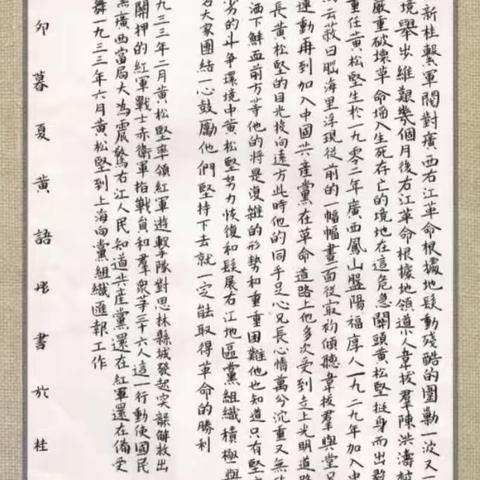 新桂繫軍閥對廣西右江革命根據地髮動殘酷的圍剿一波又一
境舉步維艱幾個月後右江革命根據地領導人韋拔羣陳洪濤被
嚴重破壞革命陷入生死存亡的境地在這危急關頭黃松堅挺身而出毅
重任黃松堅生於一九零二年廣西鳳山盤陽福厚人一九二九年加入中
去救腦海里浮現從前的一幅幅畫面從最初傾聽韋拔羣與堂兄
運動再到加入中國共產黨在革命道路上他多次受到走上光明道路
長黃松堅的目光投向遠方此時他的同手足心兄長心情萬分沉重又無
洒下鮮血前方等他的將是復雜的形勢和重重困難他也知道只有堅
劣的斗爭環境中黃松堅努力恢復和髮展右江地區黨組織積極與
大家團結一心鼓勵他們堅持下去就一定能取得革命的勝利
九三三年二月黃松堅率領紅軍遊擊隊對思林縣城發起突襲解救出
關押的紅軍戰士赤衛軍指戰員和羣衆等二十六人這一行動使國民
廣西當局大為震驚右江人民知道共産黨還在紅軍還在備受
舞一九三三年六月黃松堅到上海向黨組織匯報工作
卯暮夏黃語書於桂